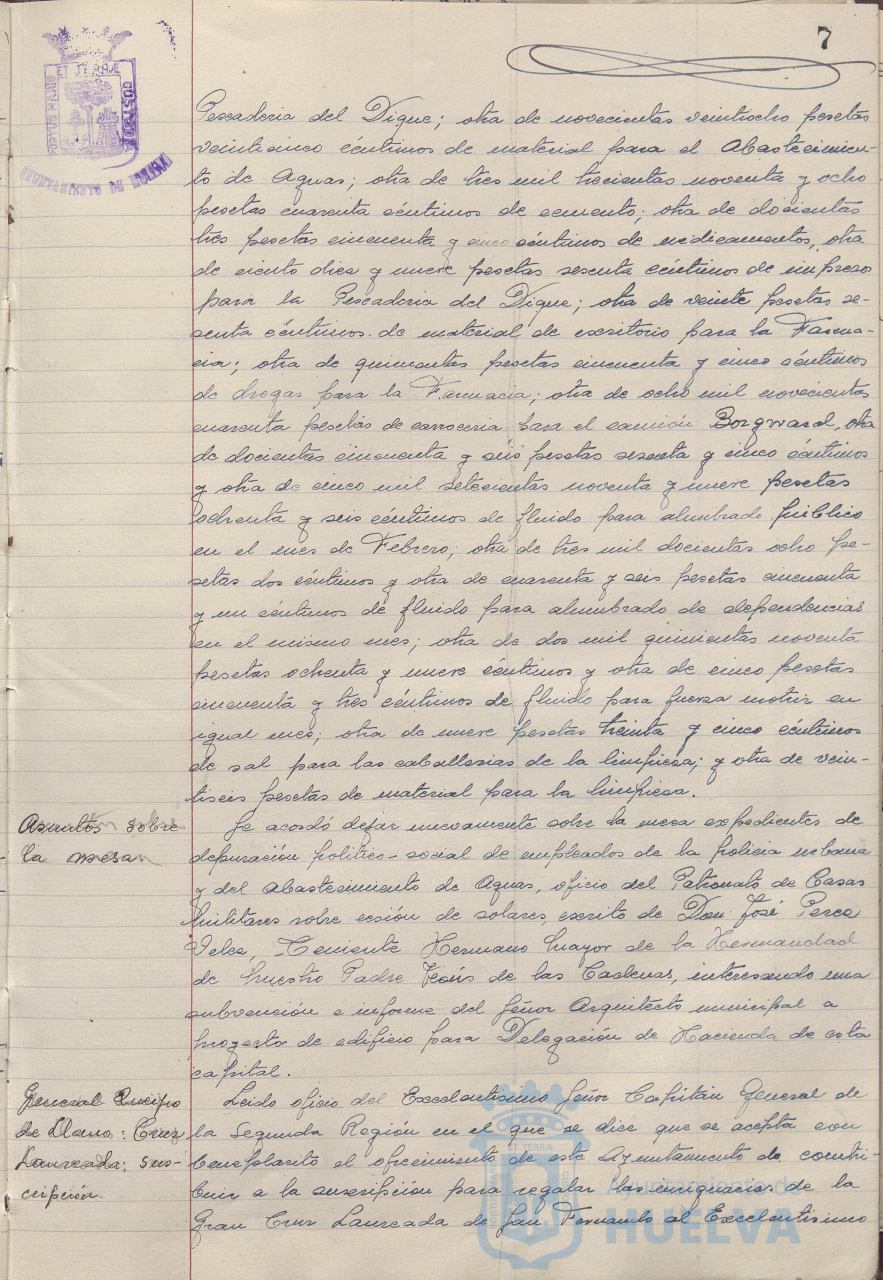 7
PORTUS MARIS ET TERRÆ CUSTODIA
AYUNTAMIENTO DE HUELVA
Pescaderia del Dique; otra de novecientas veintiocho pesetas
veinticinco céntimos de material para el Abastecimien-
to de Aguas; otra de tres mil trecientas noventa y ocho
pesetas cuarenta céntimos de cemento; otra de docientas
tres pesetas cincuenta y cinco céntimos de medicamentos, otra
de ciento diez y nueve pesetas sesenta céntimos de impresos
para la Pescaderia del Dique; otra de veinte pesetas se-
senta céntimos de material de escritorio para la Farma-
cia; otra de quinientas pesetas cincuenta y cinco céntimos
de drogas para la Farmacia; otra de ocho mil novecientas
cuarenta pesetas de carroceria para el camión Borgward, otra
de docientas cincuenta y seis pesetas sesenta y cinco céntimos
y otra de cinco mil setecientas noventa y nueve pesetas
ochenta y seis céntimos de fluido para alumbrado público
en el mes de Febrero; otra de tres mil docientas ocho pe-
setas dos céntimos y otra de cuarenta y seis pesetas cincuenta
y un céntimos de fluido para alumbrado de dependencias
en el mismo mes; otra de dos mil quinientas noventa
pesetas ochenta y nueve céntimos y otra de cinco pesetas
cincuenta y tres céntimos de fluido para fuerza motriz en
igual mes; otra de nueve pesetas treinta y cinco céntimos
de sal para las caballerias de la limpieza; y otra de vein-
tiseis pesetas de material para la limpieza.
Asuntos sobre
la mesa
Se acordó dejar nuevamente sobre la mesa expedientes de
depuración politico-social de empleados de la policia urbana
y del Abastecimiento de Aguas, oficio del Patronato de Casas
Militares sobre cesión de solares, escrito de Don José Perea
Velez, Teniente Hermano Mayor de la Hermandad
de Nuestro Padre Jesús de las Cadenas, interesando una
subvención e informe del Señor Arquitecto municipal a
proyecto de edificio para Delegación de Hacienda de esta
capital.
General Queipo
de Llano: Cruz
Laureada; sus-
cripción
Leido oficio del Excelentisimo Señor Capitán General de
la Segunda Región en el que se dice que se acepta con
beneplacito el ofrecimiento de este Ayuntamiento de contri-
buir a la suscripción para regalar las insignias de la
Gran Cruz Laureada de San Fernando al Excelentisimo
Ayuntamiento de
HUELVA